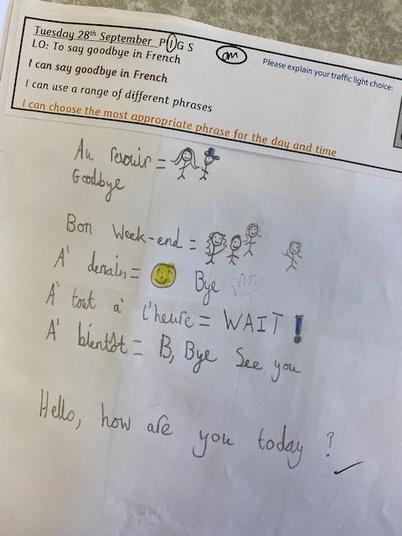 Tuesday 28th September PIGS
LO: To say goodbye in French
Please explain your traffic light choice:
I can say goodbye in French
I can use a range of different phrases
I can choose the most appropriate phrase for the day and time
Au revoir =
Goodbye
Bon Week-end =
A' demain = Bye
A' tout a' l'heure = WAIT!
A' bientôt = B, Bye See you
Hello, how are you today?